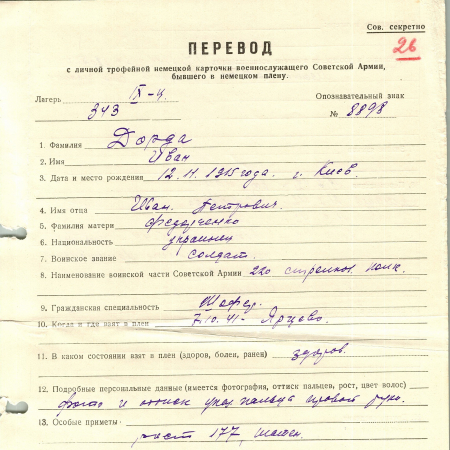 Сов. секретно
26
ПЕРЕВОД
с личной трофейной немецкой карточки военнослужащего Советской Армии,
бывшего в немецком плену.
Лагерь IX-ц. Опознавательный знак
343 № 8898
1. Фамилия Дорда
2. Имя Иван
3. Дата и место рождения 12. 11. 1915 года. г. Киев.
4. Имя отца Иван Петрович.
5. Фамилия матери Федорченко
6. Национальность украинец
7. Воинское звание солдат.
8. Наименование воинской части Советской Армии 220 стрелков. полк.
9. Гражданская специальность Шофер.
10. Когда и где взят в плен 7.10. 41- Ярцево.
11. В каком состоянии взят в плен (здоров, болен, ранен) здоров.
12. Подробные персональные данные (имеется фотография, оттиск пальцев, рост, цвет волос)
фото и оттиск указ пальца правой руки.
13. Особые приметы
рост 177,